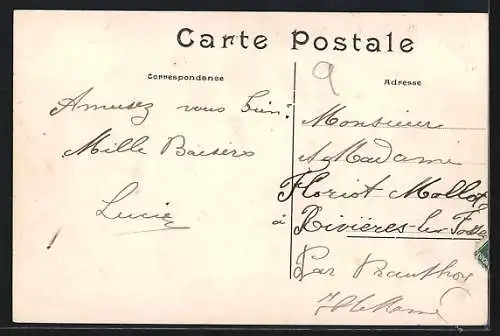 Carte Postale
Correspondance
Adresse
Amusez vous bien.
Mille Baisers
Lucie
Monsieur
& Madame
Floriot Mollot
à Rivières-les-Fosses
Par Prauthoy
Hte Marne